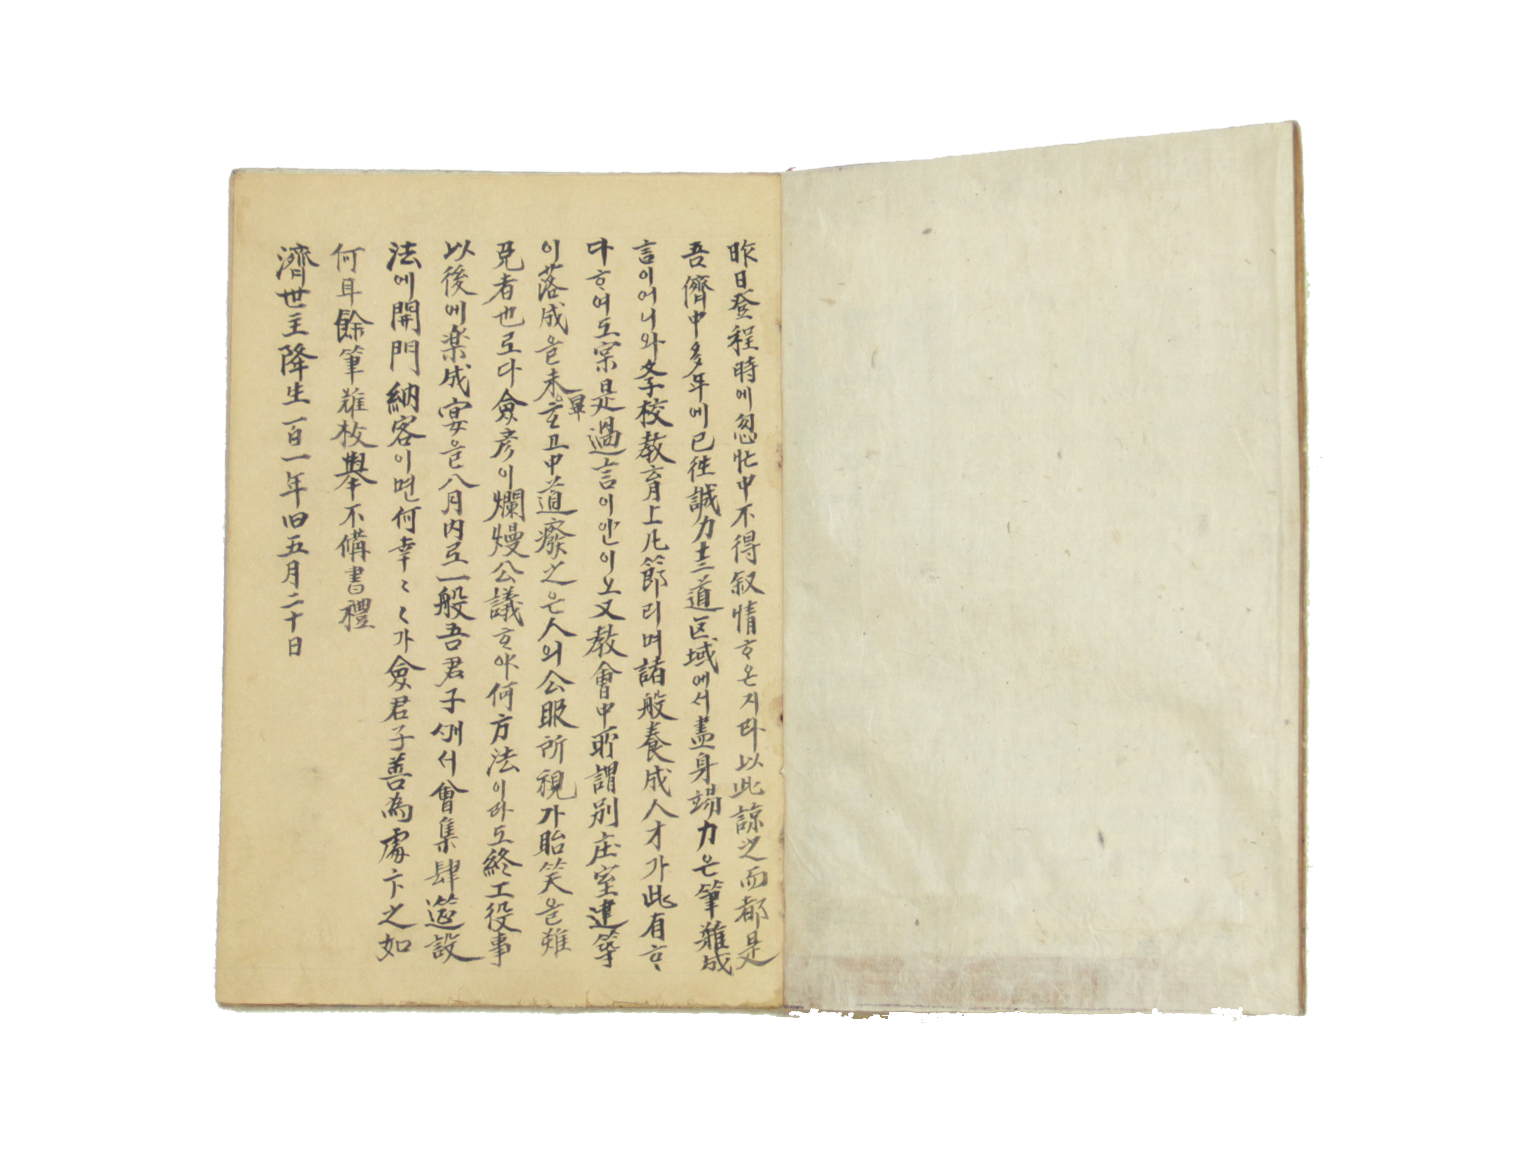 昨日登程時에忽忙中不得叙情ᄒᆞ온지라以此諒之而都是
吾儕中多年에已往誠力士三道区域에서盡身竭力은筆難成
言이어니와學校教育上凡節리며諸般養成人才가此有ᄒᆞ
다ᄒᆞ여도宲是過言이안이오又教會中所謂別庄室建築
이落成을未畢ᄒᆞ고中道廢之은人의公眼所視가貽笑을難
免者也로다僉彦이爛熳公議ᄒᆞ야何方法이라도終工役事
以後에楽成宴을八月内로一般吾君子ᄭᅦ서會集肆筵設
法에開門納客이면何幸〻〻가僉君子善為處卞之如
何耳餘筆難枚擧不備書禮
濟世主降生一百一年旧五月二十日